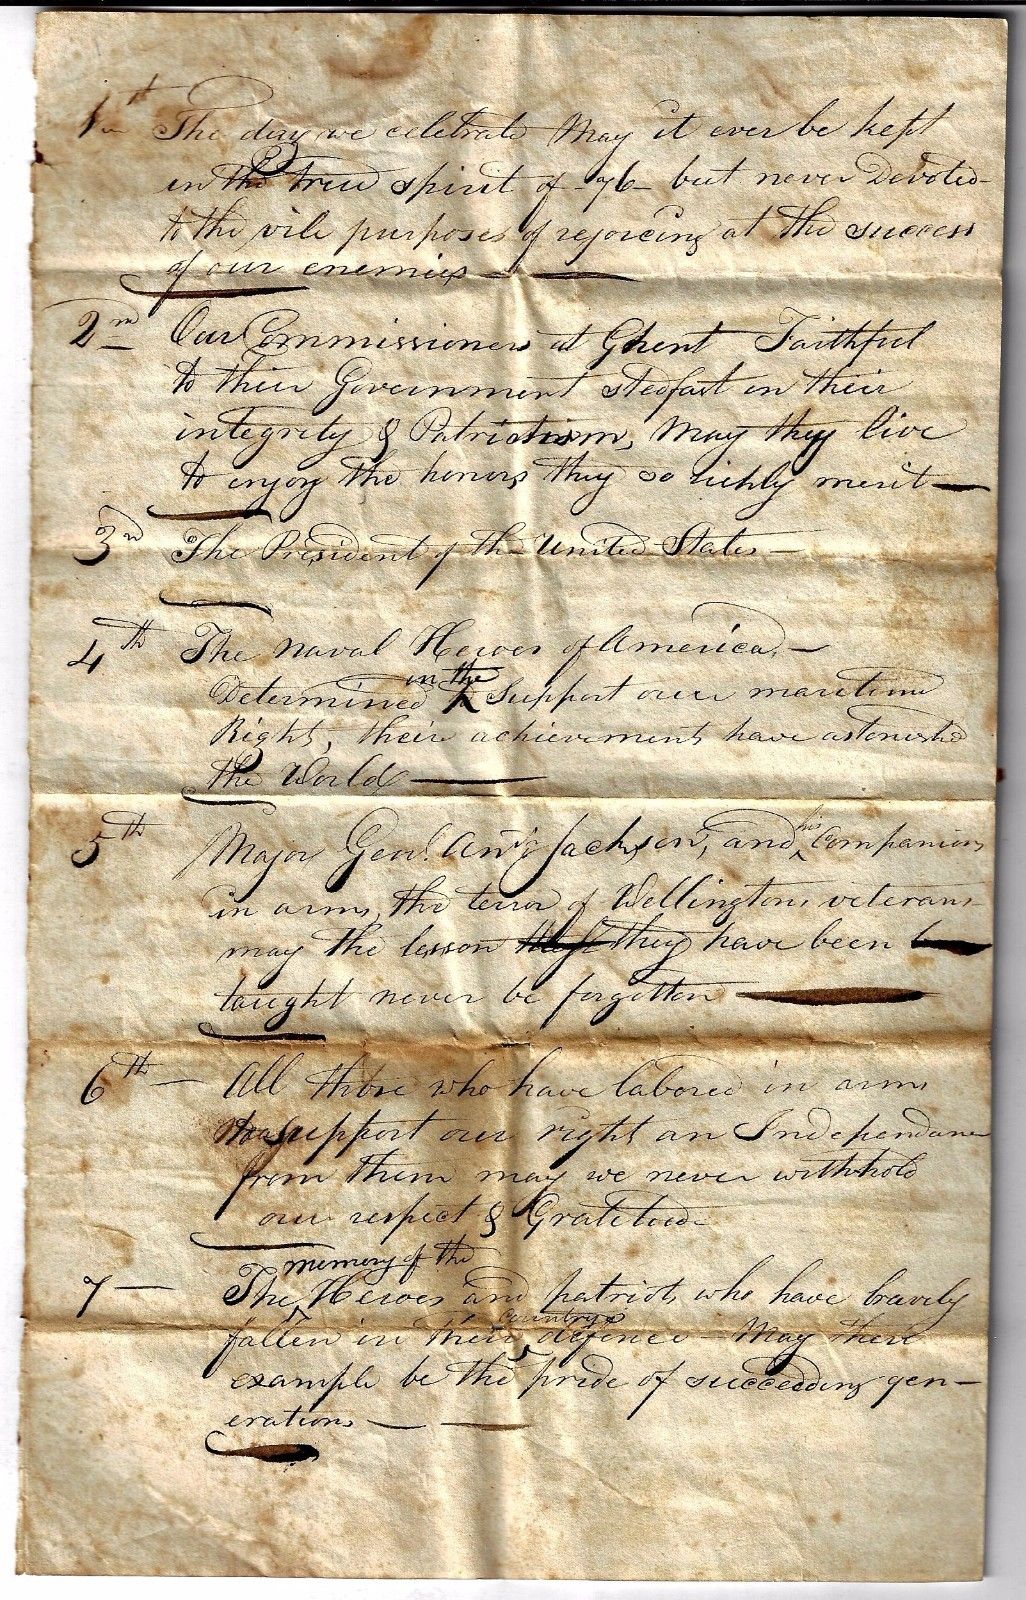 1st The day we celebrate May it ever be kept
in the true spirit of -76- but never Devoted
to the vile purposes of rejoicing at the success
of our enemies
2nd Our Commissioners at Ghent Faithful
to their Government stedfast in their
integrity & Patriotism, May they live
to enjoy the honors they so richly merit
3rd The President of the United States
4th The Naval Heroes of America,
in the
Determined Support our maritime
Rights, their achievements have astonished
the World
his
5th Major Genl. Andw Jackson, and companions
in arms, the terror of Wellingtons veterans
may the lesson they have been
taught never be forgotten
6th All those who have labored in arms
to support our rights an Independance
from them may we never withhold
our respect & Gratitude
memory of the
7 The Heroes and patriots who have bravely
countrys
fallen in their defence - May there
example be the pride of succeeding gen-
erations